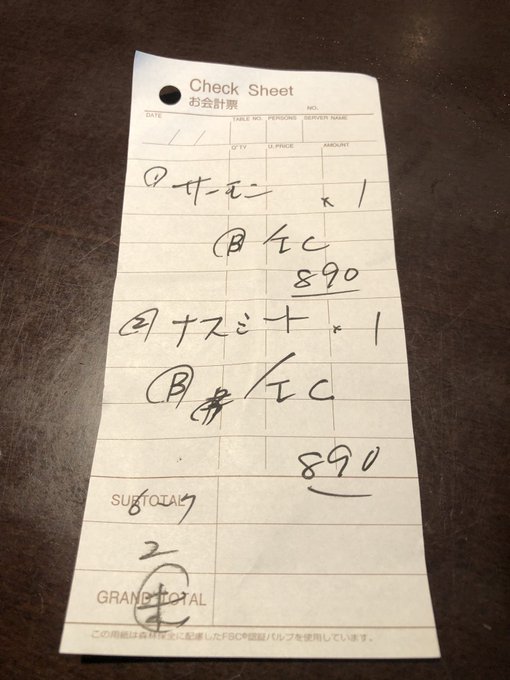 Check Sheet
お会計票
NO.
DATE TABLE NO. PERSONS SERVER NAME
/ /
Q'TY U.PRICE AMOUNT
① サーモン × 1
Ⓑ / I C
890
② ナスミート × 1
Ⓑ / I C
890
SUBTOTAL
6-7
2
GRAND TOTAL
この用紙は森林保全に配慮したFSC®認証パルプを使用しています。